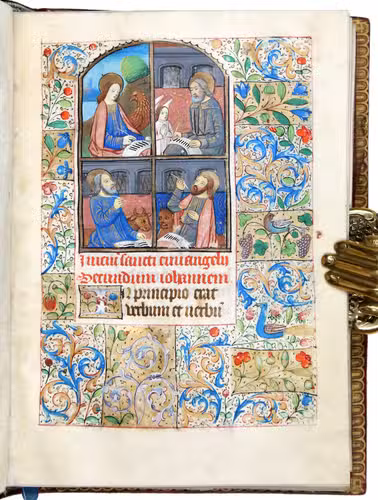 Iniciū sancti euuangelij
Secundum iohannem
In principio erat
verbum et verbū